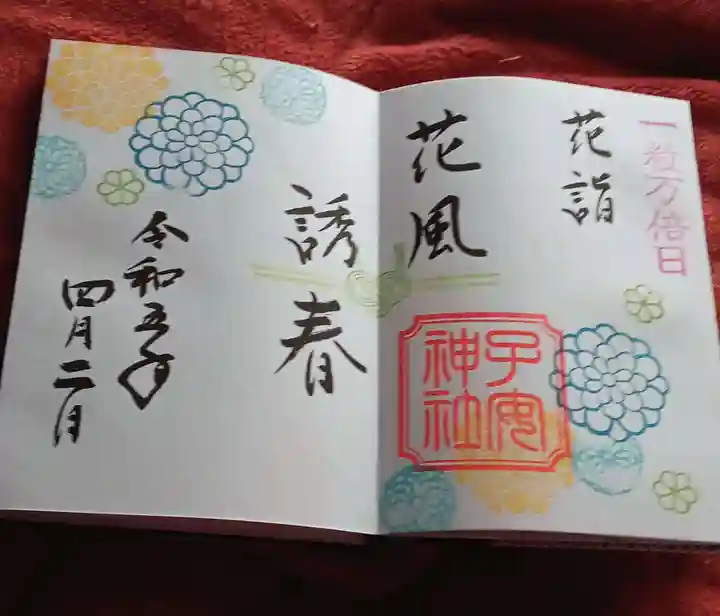 一粒万倍日
花詣
花風
子安
神社
誘春
令和五年
四月二日